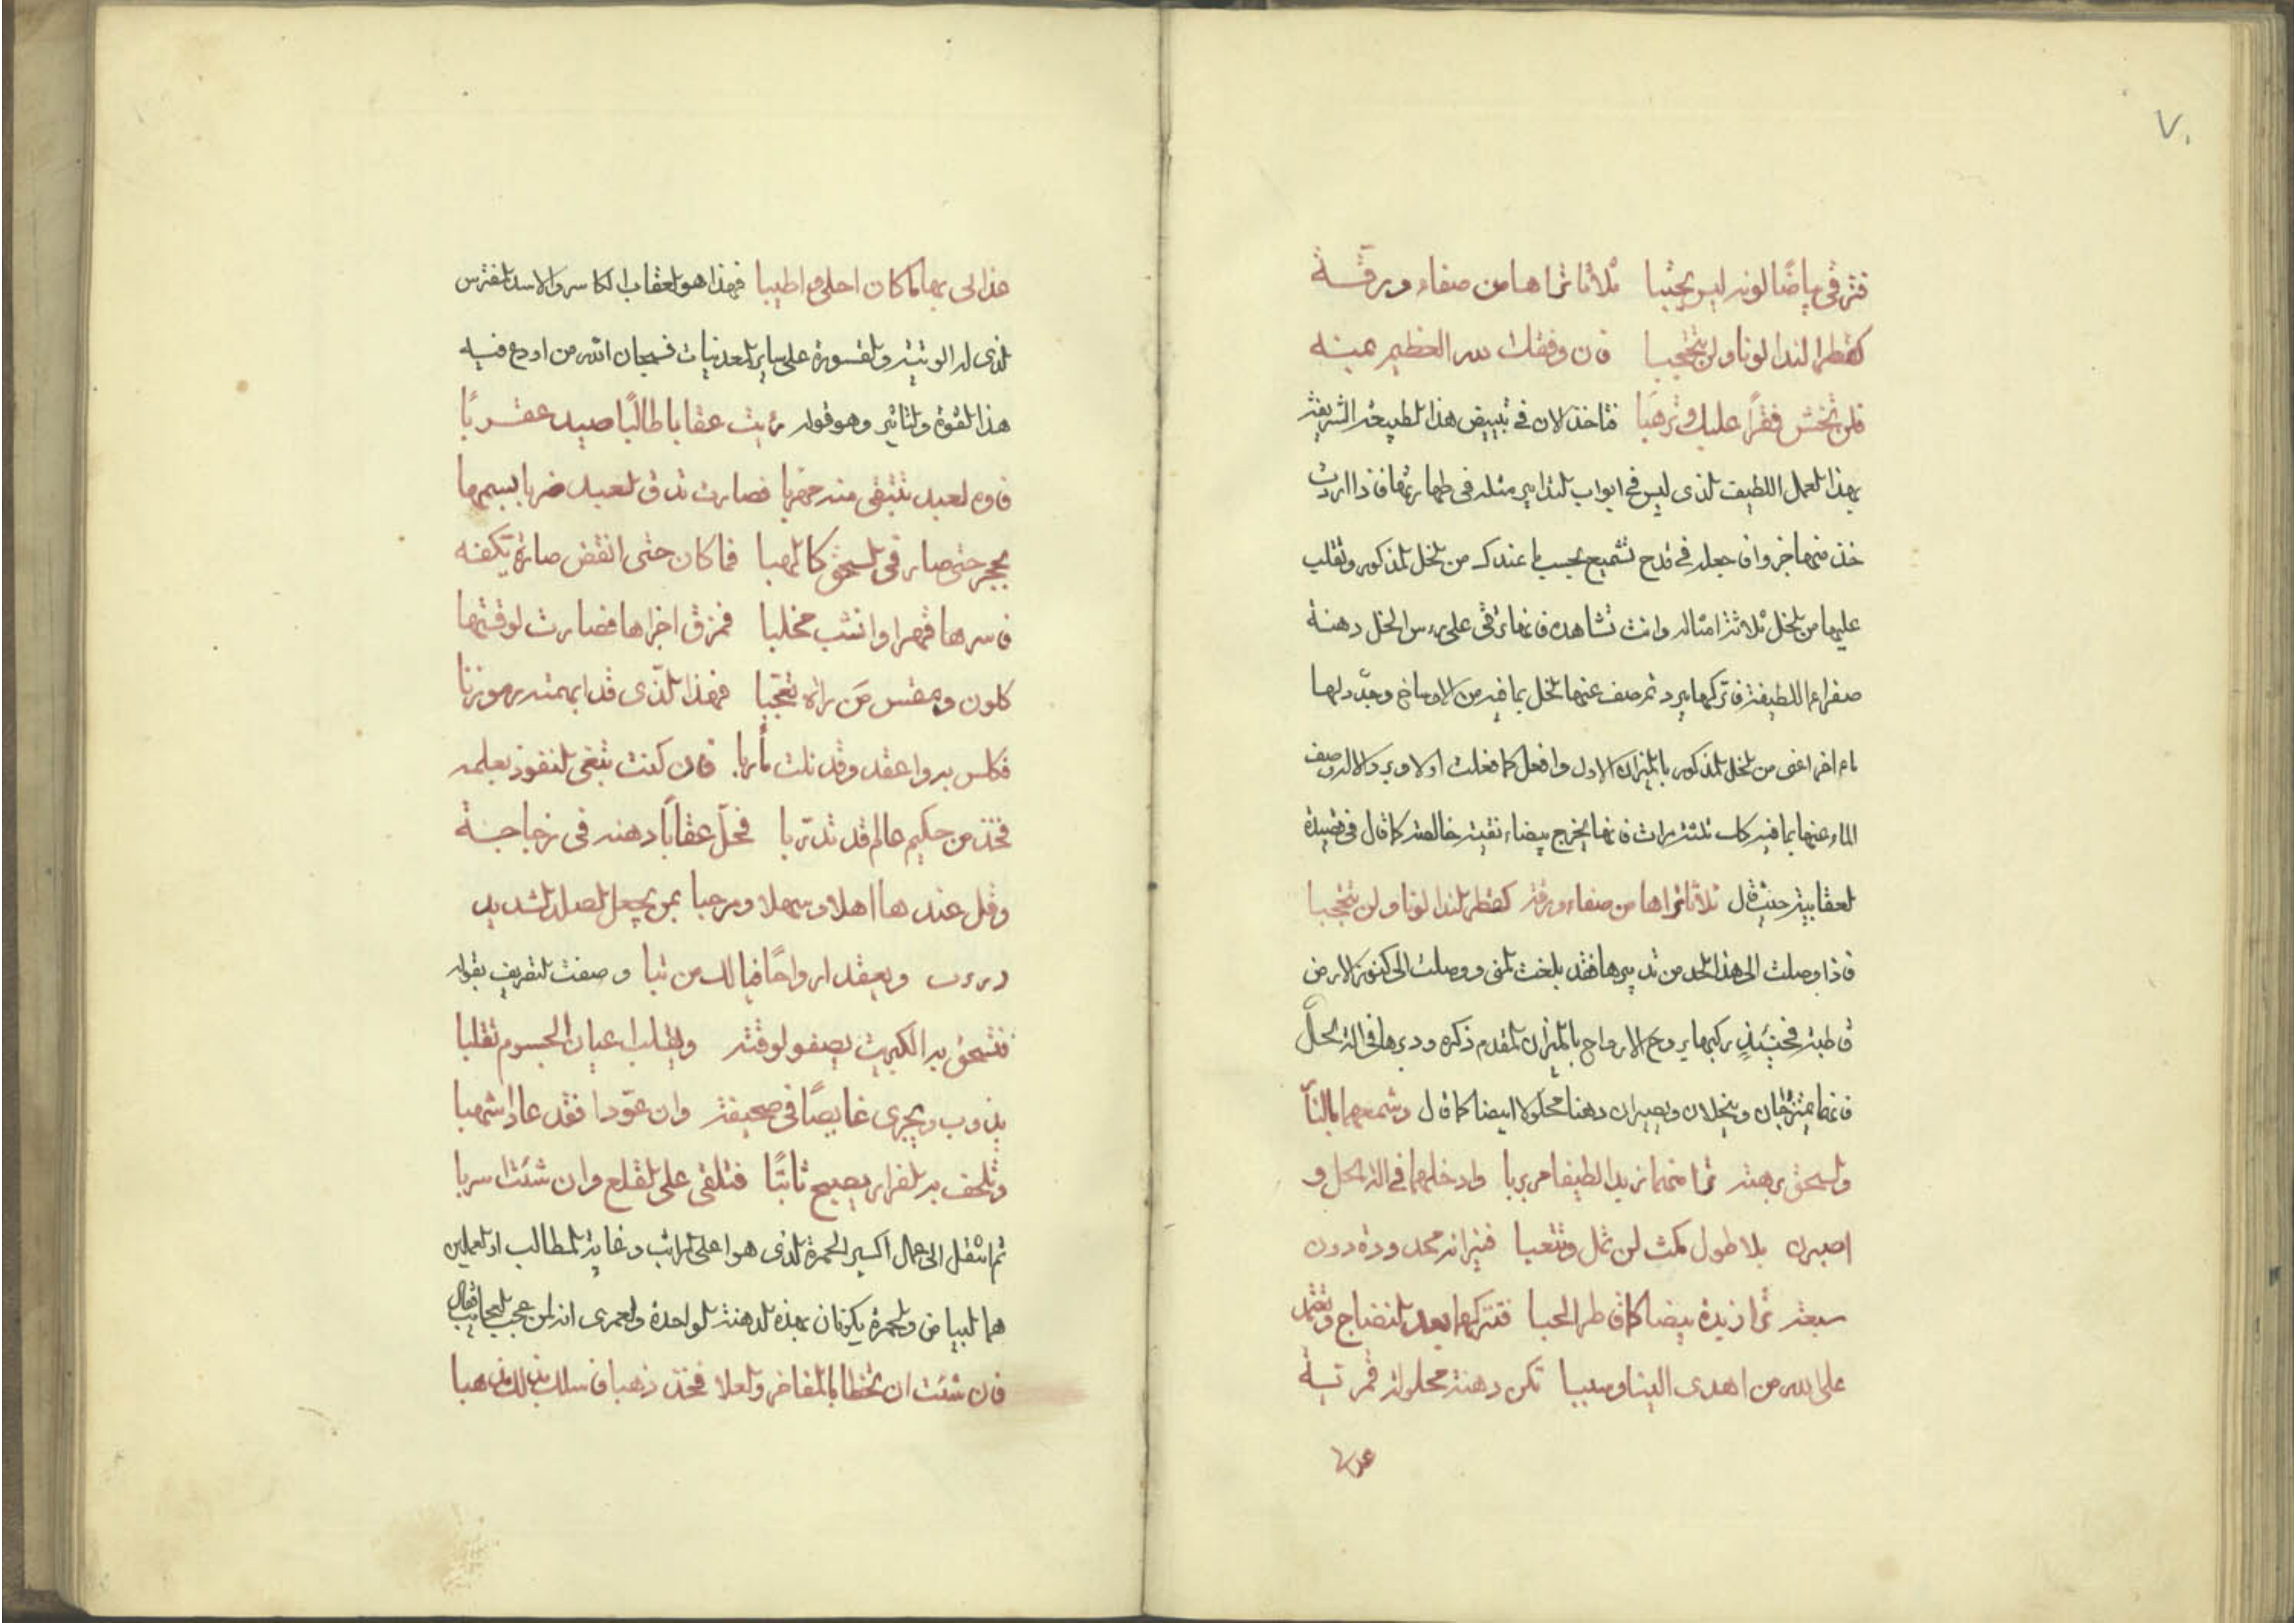 ٧٠
فترقى بياضا لونه ليس يحتبا ثلاثا تراها من صفاء ورقة
كقطر الندا لونا ولن يتحجبا فان وفقك لله العظيم بمنه
فلن تخش فقرا عليك وترهبا فتاخذ الان في تبييض هذا الطبيعة الشريفة
بهذا العمل اللطيف الذى ليس فى ابواب التدابير مثله فى طهارتها فاذا اردت
خذ منها جزوا فاجعله فى قدح تشميع بحسب ما عندك من الخل المذكور وتقلب
عليها من الخل ثلاثة امثاله وانت تشاهده فانها ترقى على رءس الخل دهنة
صفراء اللطيفة فاتركها يبرد ثم صف عنها الخل بما فيه من الاوساخ وجدد لها
ماء اخر اعنى من الخل المذكور بالميزان الاول وافعل كما فعلت اولا وصف
الماء عنها بما فيه كك ثلثة مرات فانها يخرج بيضاء نقية خالصة كما قال فى قصيدة
العقابية حيث قال ثلاثا تراها من صفاء ورقة كقطر الندا لونا ولن يتحجبا
فاذا وصلت الى هذا الحد من تدبيرها فقد بلغت المنى ووصلت الى كنوز الارض
قاطبة فحينئذ ركبها بروح الارواح بالميزان المقدم ذكره ودبرها فى الة الحل
فانها يمتزجان وينحلان ويصيران دهنا محلولا ابيضا كما قال وشمعهما بالنار
والسحق برهة ترا منهما زبدا لطيفا مربربا وادخلهما فى الة الحل و
اصبرن بلا طول مكث لن تمل وتتعبا فميزانه محدودة دون
سبعة ترا زبدة بيضا كاقاطر الحبا فتتركها بعد النضاج وتعتمد
على الله من اهدى الينا وسببا تكن دهنة محلولة قمرتية
عذالى بها كما كان احلى واطيبا فهذا هو العقاب الكاسر والاسد المفترس
الذى له الوثبة والقسورة على ساير المعدنيات فسبحان الله من اودع فيه
هذا القوة والتاثير وهو قوله رايت عقابا طالبا صيد عقربا
فاوه العبد تبتغى منه مهربا فصارت تدق العبد ضربا بسمها
بحجر حتى صار فى السحق كالهبا فما كان حتى انقض صارة بكفه
فاسرها قهرا وانشب مخلبا فمزق اجزاها فصارت لوقتها
كلون دمقس من راه تعجبا فهذا الذى قد ابهمته رموزنا
فكلس به واعقد وقد نلت مأربا فان كنت تبغى النفوذ بعلمه
فخذ من حكيم عالم قد تدربا فحل عقابا دهنه فى زجاجة
وقل عندها اهلا وسهلا ومرحبا بمن يجعل الصلد الشديد
ويعقد ارواحا فيالك من نبا وصفت التقريف بقوله
فتسحق به الكبريت يصفو لوقته ويقلب اعيان الجسوم تقلبا
يذوب ويجرى غايصا فى صحيفة وان عودا فقد عاد اشهبا
وتلحف به الفرار يصبح ثابتا فتلقى على القلع وان شئت اسربا
ثم انتقل الى اعمال اكسير الحمرة الذى هو اعلى المراتب وغاية المطالب اذ العملين
هما البياض والحمرة يكونان بهذه الدهنة الواحدة ولعمرى انه لمن عجب العجائب فقال
فان شئت ان تحظا بالمفاخر والعلا فخذ ذهبا فاسلك بذلك مذهبا